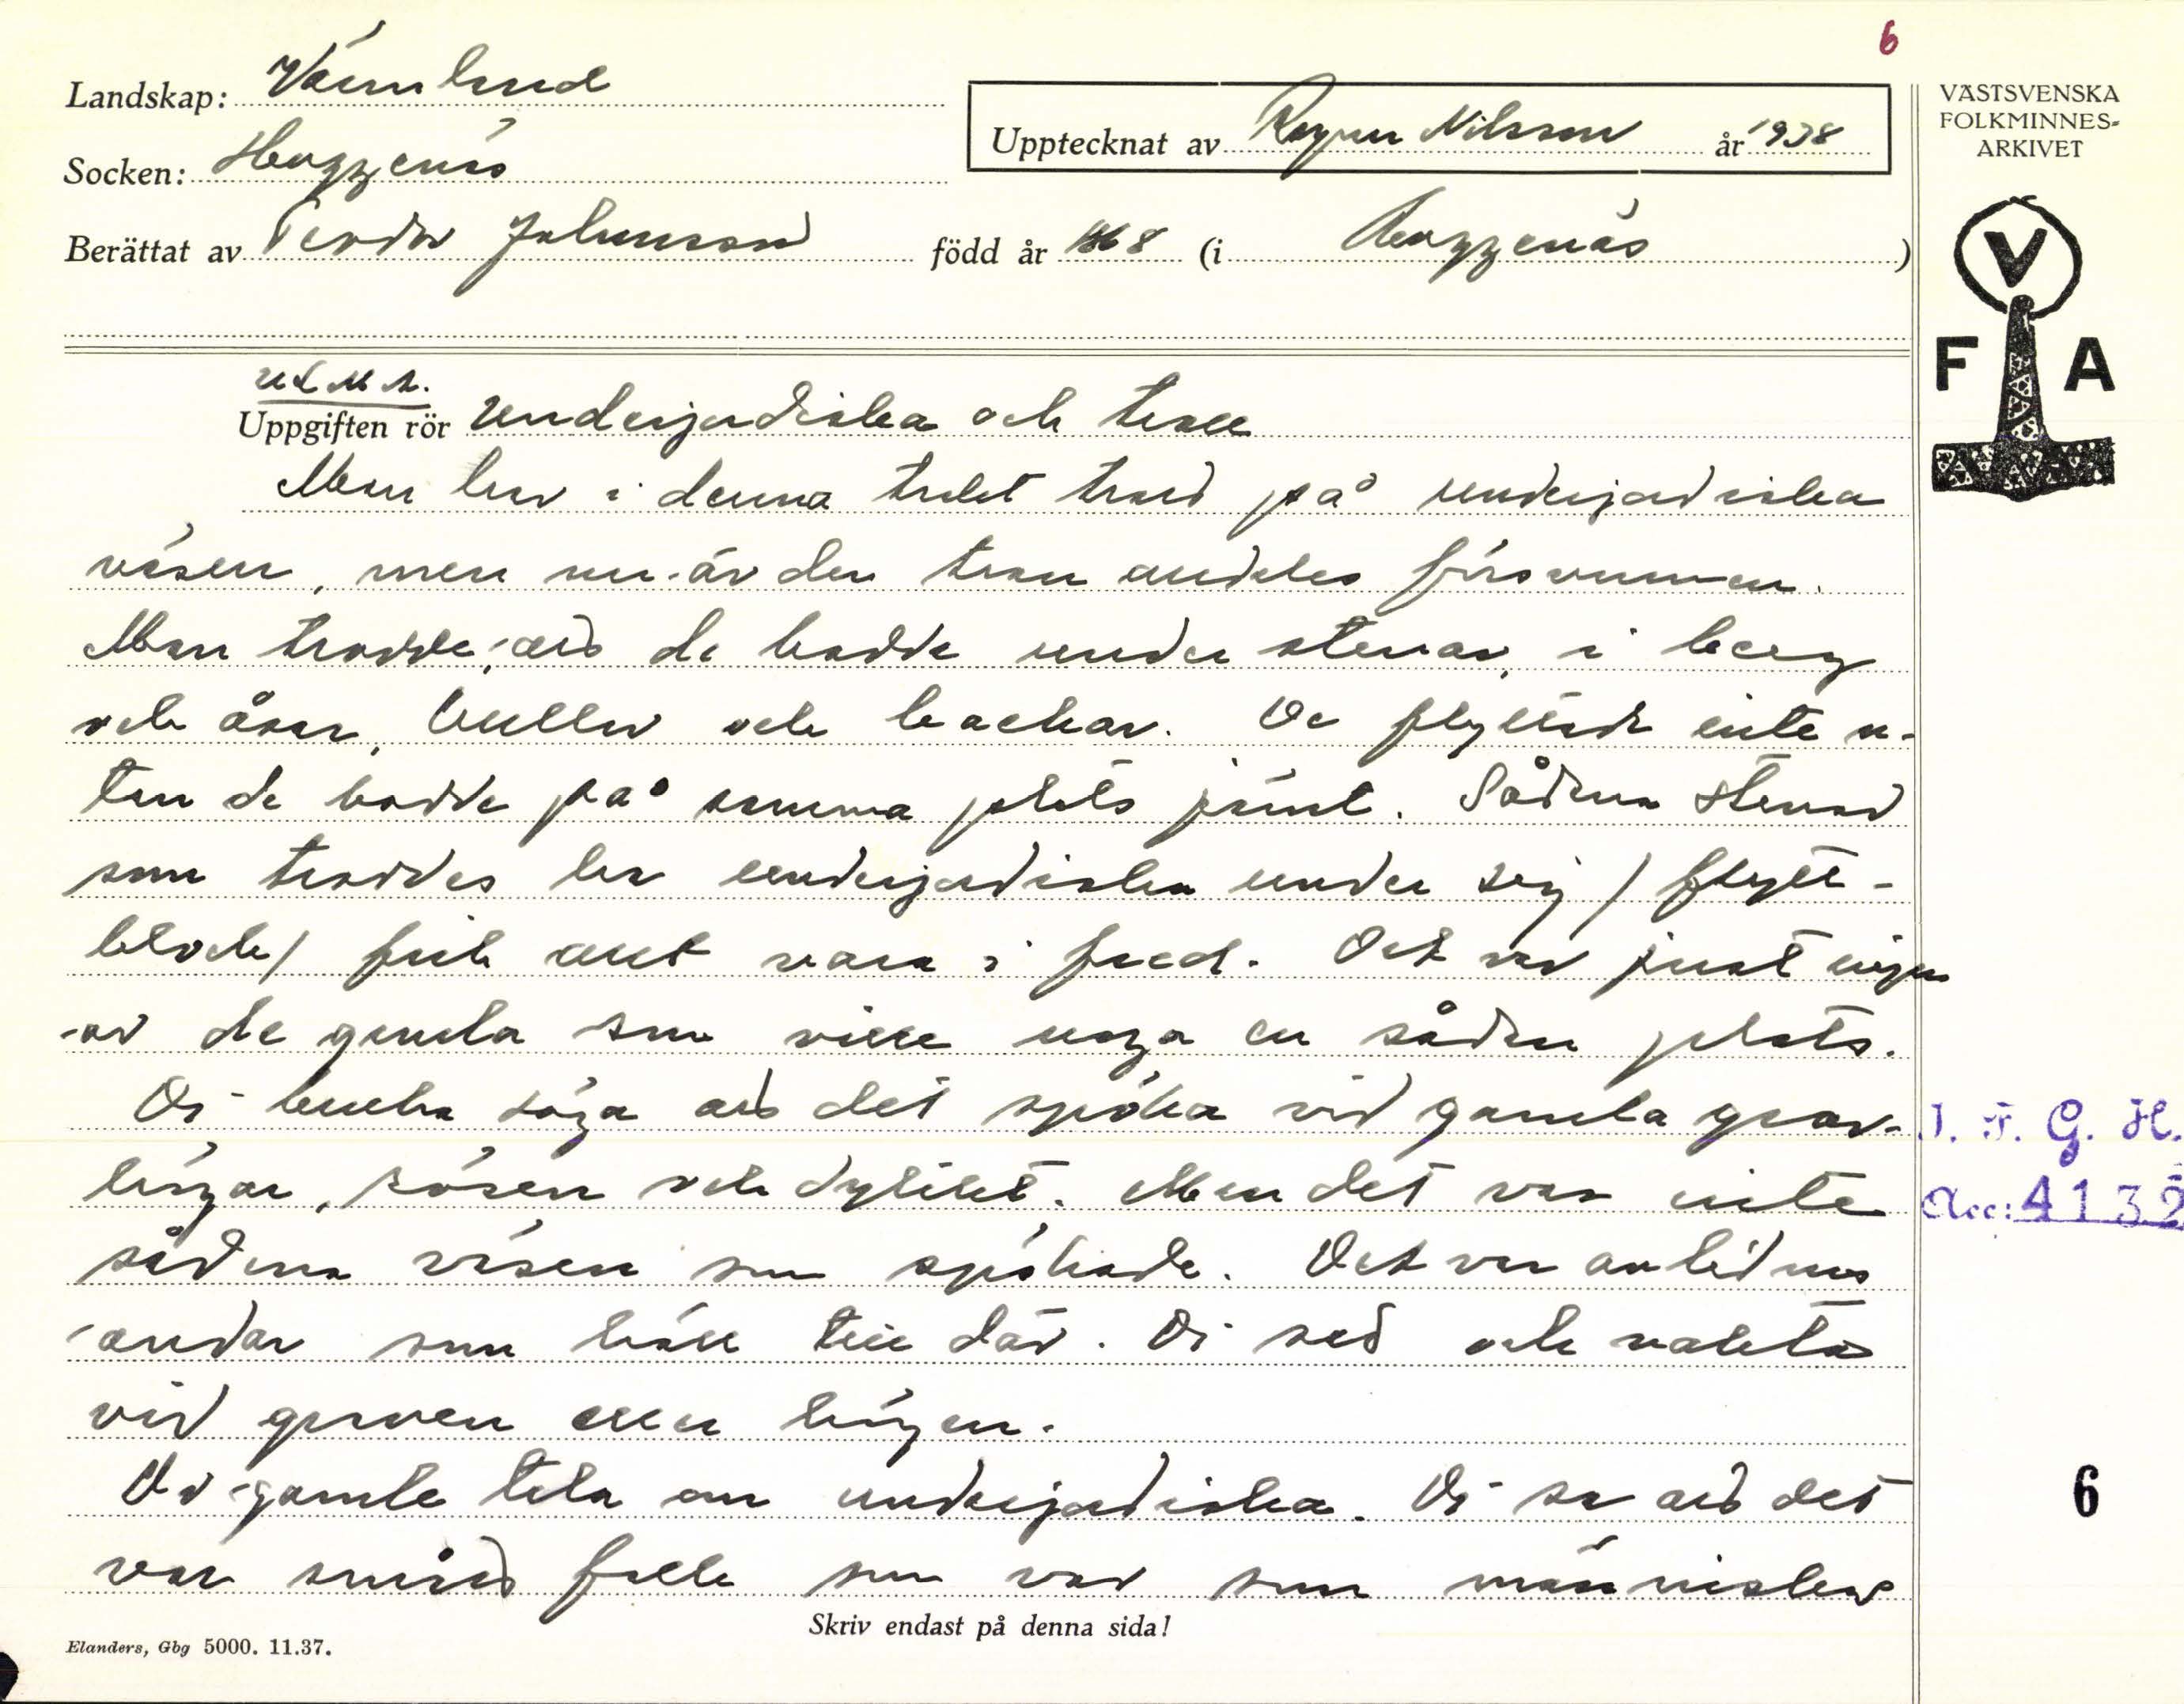 6
Landskap: Värmland
Socken: Huggenäs
Upptecknat av Ragnar Nilsson år 1938
Berättat av Teodor Johansson född år 1868 (i Huggenäs)
VÄSTSVENSKA
FOLKMINNES-
ARKIVET
V
F A
ULMA.
Uppgiften rör underjordiska och troll
Man har i denna trakt trott på underjordiska
väsen, men nu är den tron alldeles försvunnen.
Man trodde, att de bodde under stenar, i berg
och åsar, kullar och backar. De flyttade inte u-
tan de bodde på samma plats jämt. Sådana stenar
som troddes ha underjordiska under sig / flytt-
block / fick allt vara i fred. Det var just ingen
av de gamla som ville röja en sådan plats.
Di bruka säga att det spöka vid gamla grav-
högar, rösen och dylikt. Men det var inte
sådana väsen som spökade. Det var avlidnas
andar som höll till där. Di satt och vaktade
vid graven eller högen.
De gamle tala om underjordiska. Di sa att det
var smått folk som var som människor
Skriv endast på denna sida!
Elanders, Gbg 5000. 11.37.
I. F. G. H.
Acc: 4132
6